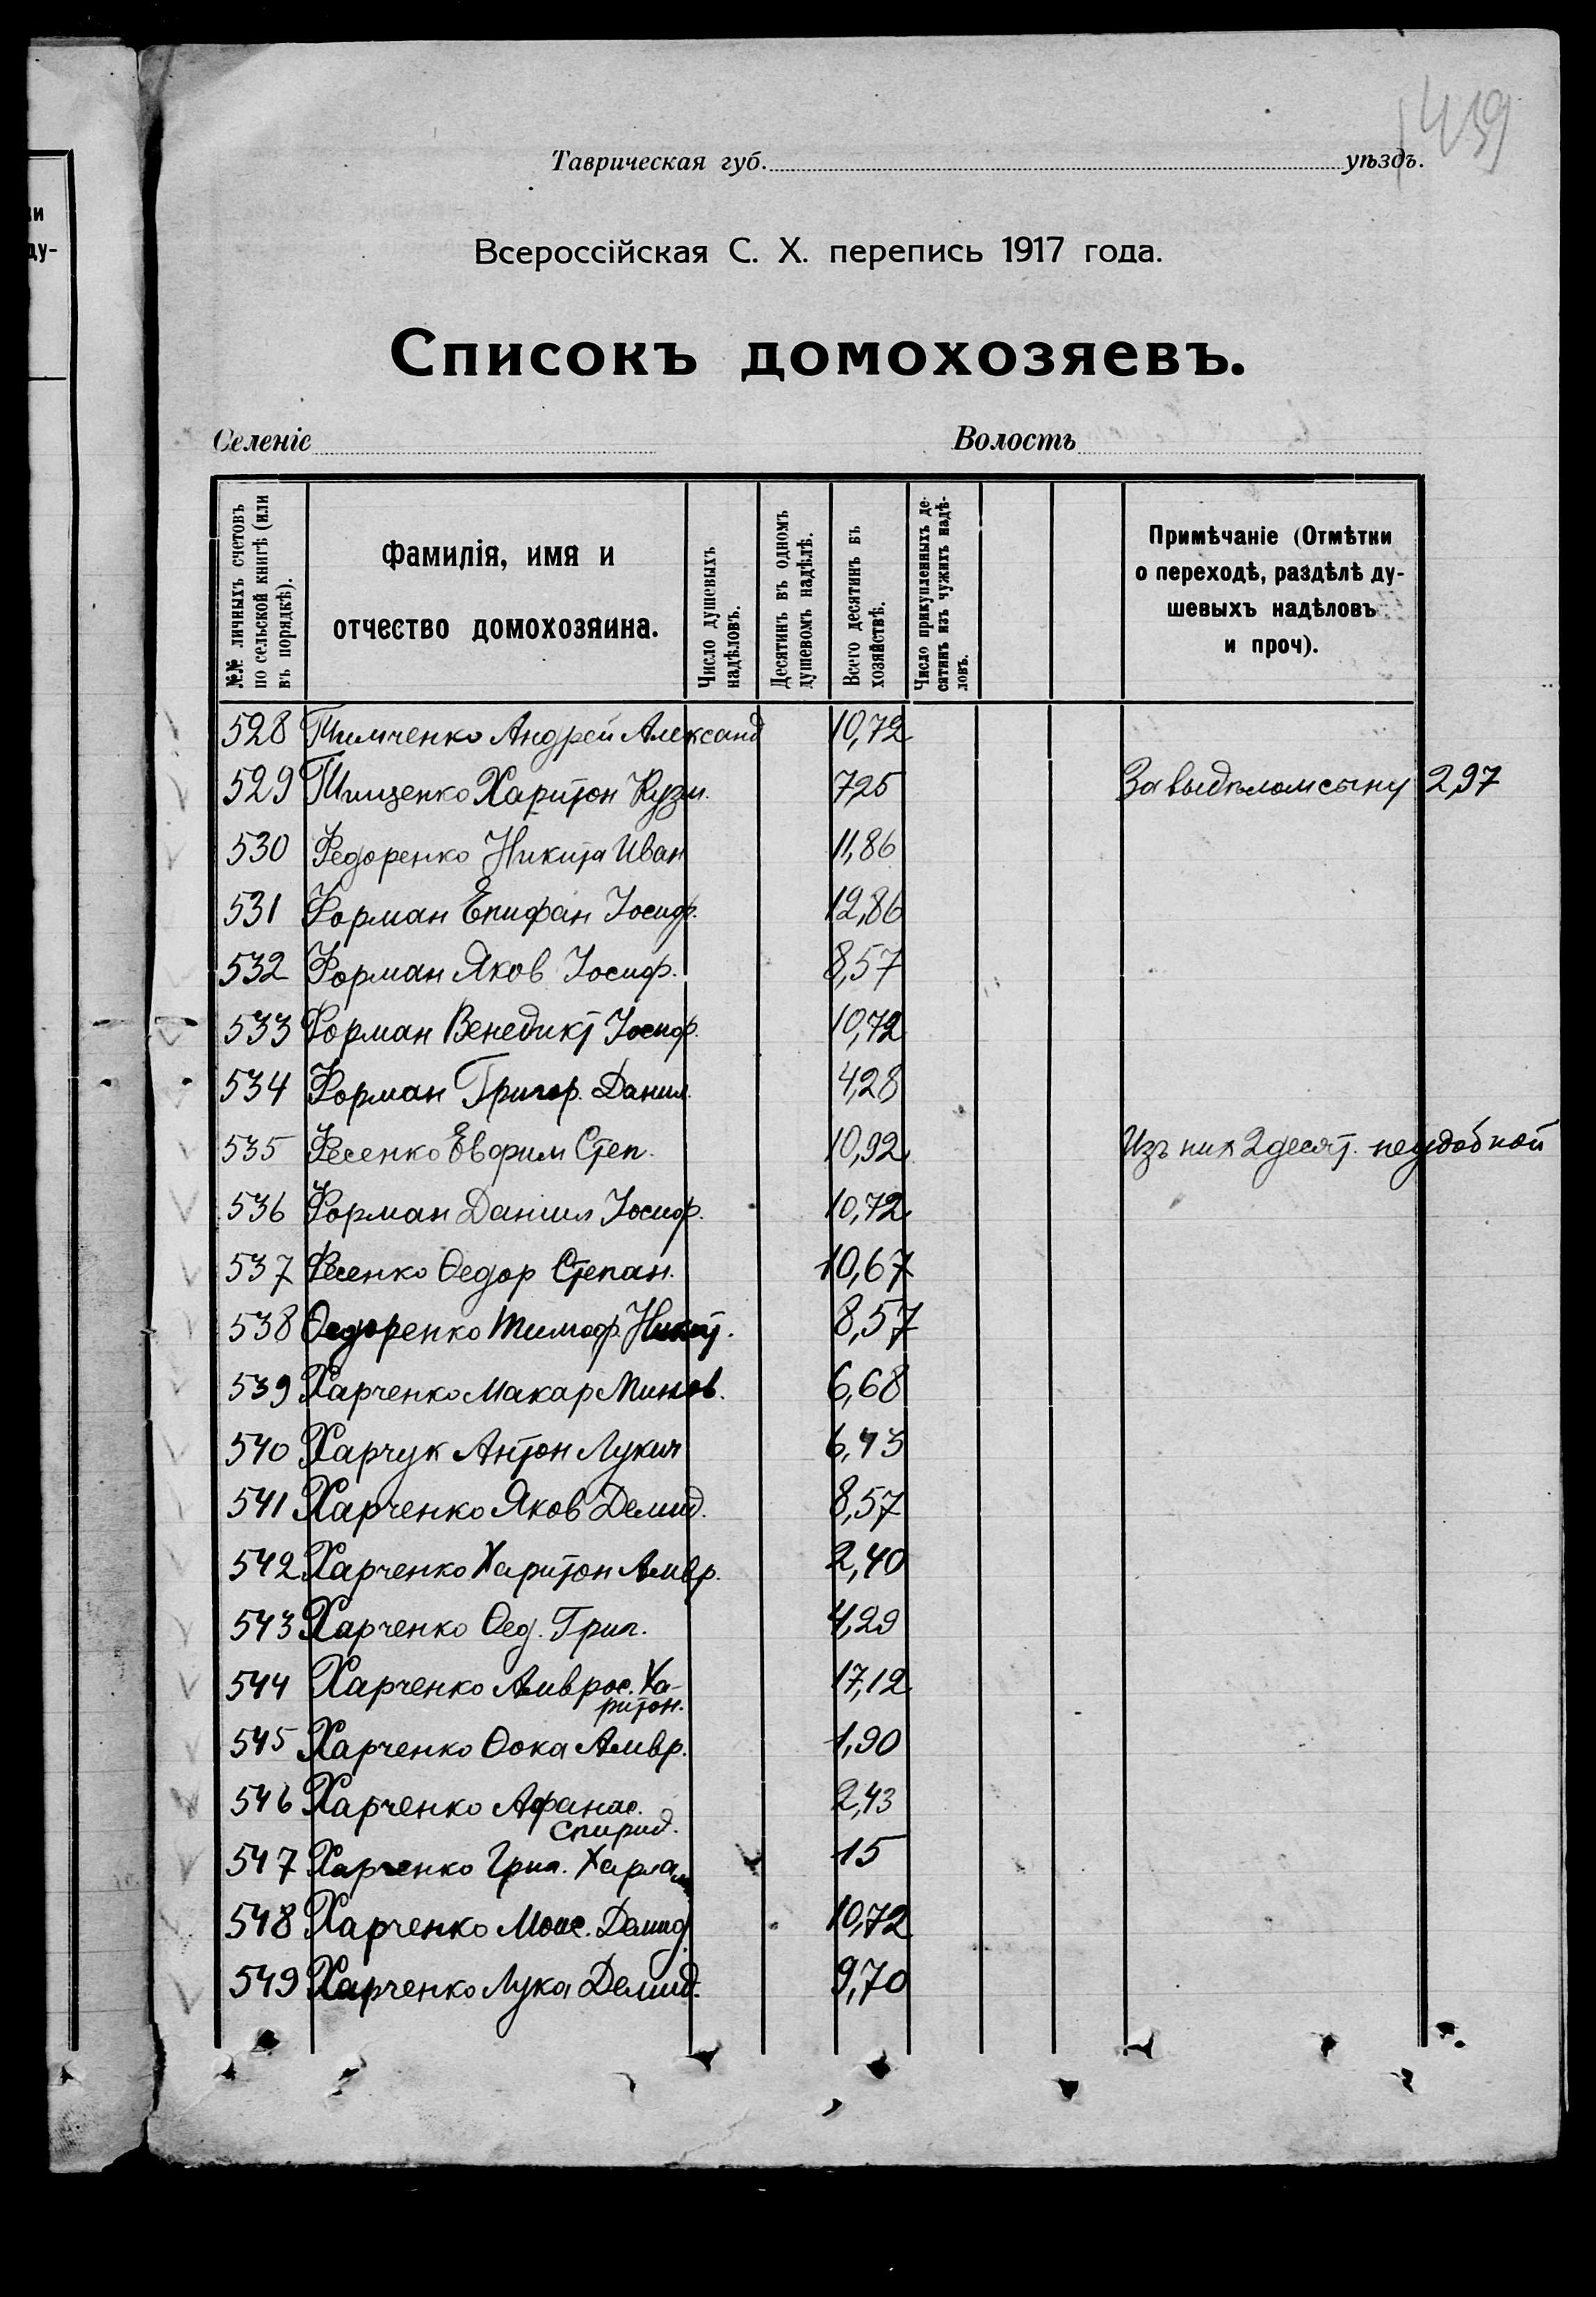 439
Таврическая губ. уѣздъ.
Всероссійская С. Х. перепись 1917 года.
Списокъ домохозяевъ.
Селеніе Волость
№№ личныхъ счетовъ по сельской книгѣ (или въ порядкѣ).
Фамилія, имя и отчество домохозяина.
Число душевыхъ надѣловъ.
Десятинъ въ одномъ душевомъ надѣлѣ.
Всего десятинъ въ хозяйствѣ.
Число прикупленныхъ десятинъ изъ чужихъ надѣловъ.
Примѣчаніе (Отмѣтки о переходѣ, раздѣлѣ душевыхъ надѣловъ и проч).
ки
ду-
528 Тимченко Андрей Александ 10,72
529 Тищенко Харитон Кузм. 7,25 За выделом сыну 2,97
530 Федоренко Никита Иван 11,86
531 Форман Епифан Іосиф. 12,86
532 Форман Яков Іосиф. 8,57
533 Форман Венедикт Іосиф. 10,72
534 Форман Григор. Данил. 4,28
535 Фесенко Евфим Степ. 10,92 Изъ них 2 десят. неудобной
536 Форман Даниил Іосиф. 10,72
537 Фесенко Ѳедор Степан. 10,67
538 Ѳедоренко Тимоф. Никит. 8,57
539 Харченко Макар Минов. 6,68
540 Харчук Антон Лукич 6,43
541 Харченко Яков Демид. 8,57
542 Харченко Харитон Амвр. 2,40
543 Харченко Ѳед. Григ. 4,29
544 Харченко Амврос. Ха- 17,12
ритон.
545 Харченко Ѳока Амвр. 1,90
546 Харченко Афанас. 2,43
Спирид.
547 Харченко Григ. Харлам 15
548 Харченко Моис. Демид. 10,72
549 Харченко Лука Демид. 9,70